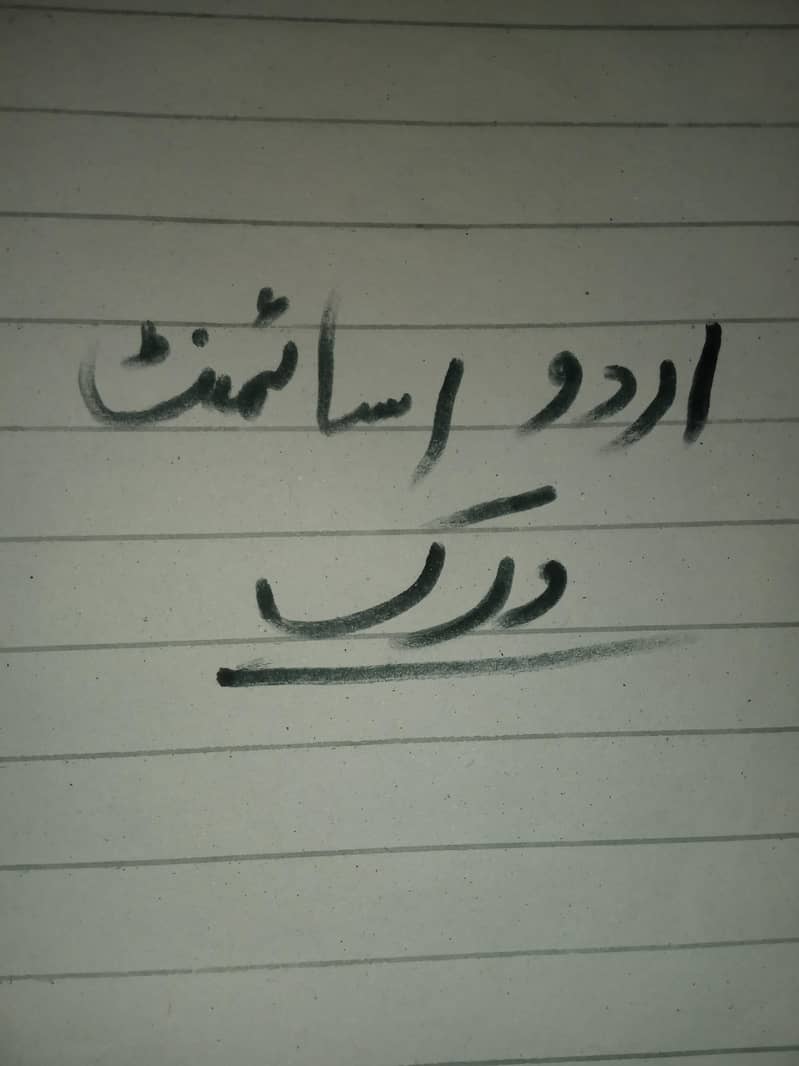 اردو اسائمنٹ
ورک